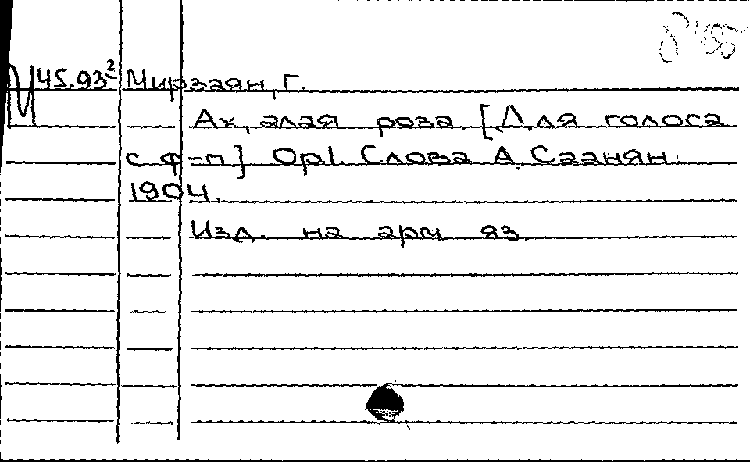 М 45.93² Мирзаян, Г.
Ах, алая роза. [Для голоса
с ф-п] Op1. Слова А. Саанян.
1904.
Изд. на арм яз.